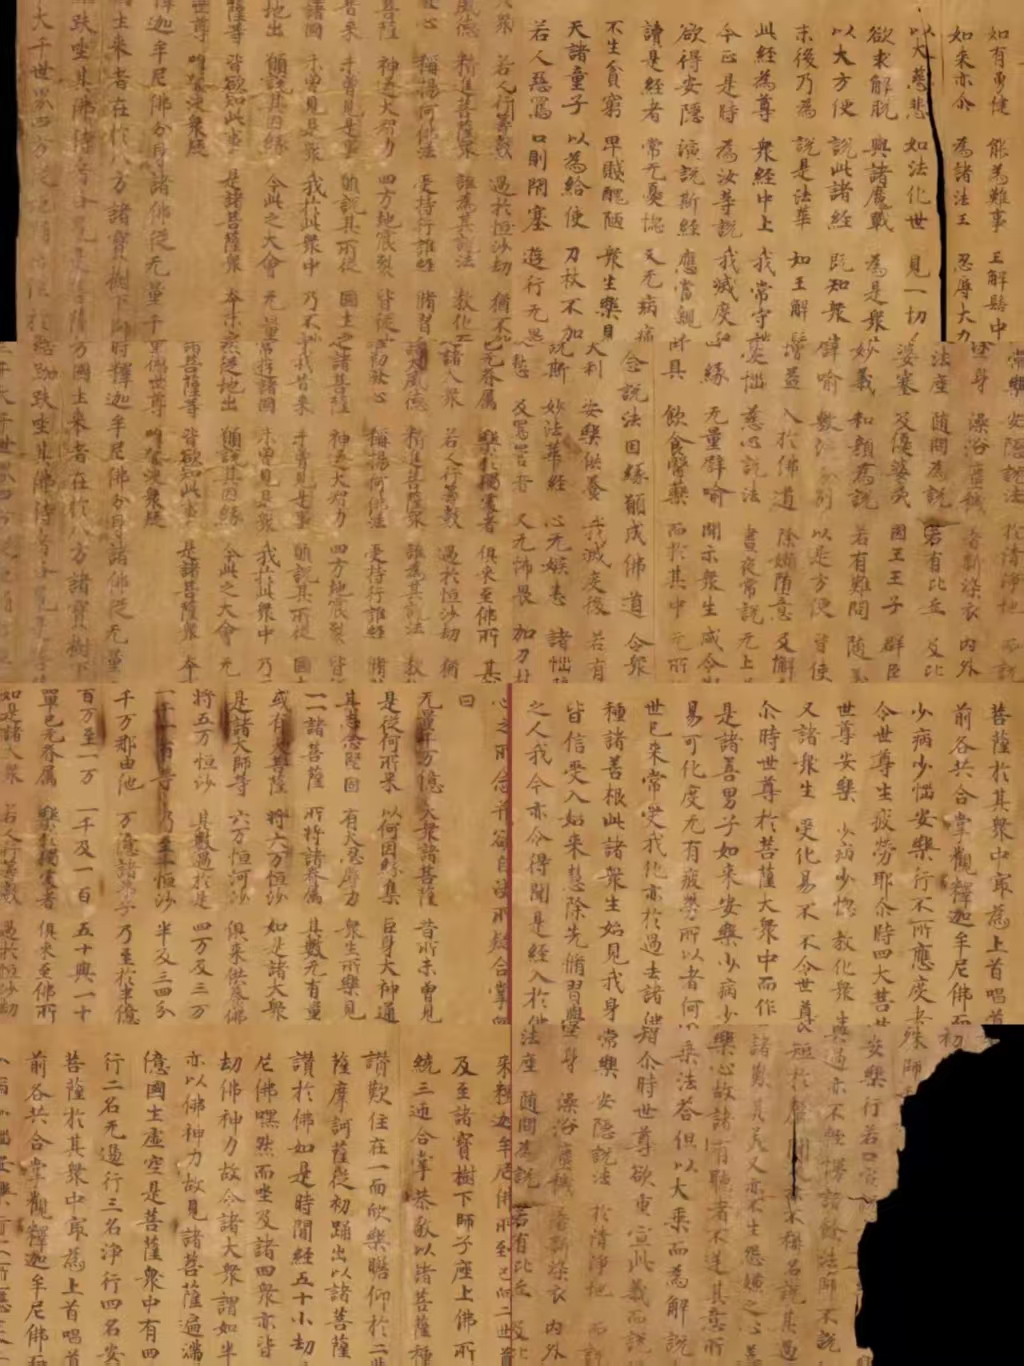 如有勇健 能為難事 王解髻中
如來亦尒 為諸法王 忍辱大力
以大慈悲 如法化世 見一切
欲求解脫 與諸魔戰 為是衆
以大方便 說此諸經 既知衆
末後乃為 說是法華 如王解髻
此經為尊 衆經中上 我常守
今正是時 為汝等說 我滅度
欲得安隱 演說斯經 應當親
讀是經者 常无憂惱 又无病痛
不生貧窮 卑賤醜陋 衆生樂見
天諸童子 以為給使 刀杖不加
若人惡罵 口則閇塞 遊行无
衆 若人行籌數 過於恒沙劫 猶不
威德 精進菩薩衆 誰為其說法 教化
發心 稱揚何佛法 受持行誰經 脩習
菩薩 神通大智力 四方地震裂 皆從
昔來 未曾見是事 願說其所從 國土之
諸國 未曾見是衆 我於此衆中 乃不
地出 願說其因緣 今此之大會 无量
菩薩等 皆欲知此事 是諸菩薩衆 本末
世尊 唯願決衆疑
釋迦牟尼佛分身諸佛從无量千
土來者在於八方諸寶樹下
趺坐其佛侍者
大千世界四方從地
常樂 安隱說法 於清淨地 而說
塗身 澡浴塵穢 著新淨衣 內外
法座 隨問為說 若有比丘 及比
婆塞 及優婆夷 國王王子 群臣
妙義 和顏為說 若有難問 隨義
譬喻 敷演分別 以是方便 皆使
增益 入於佛道 除嬾墮意 及懈
憂惱 慈心說法 晝夜常說 无上
因緣 无量譬喻 開示衆生 咸令
卧具 飲食醫藥 而於其中 无所
念說法因緣願成佛道 令衆
大利 安樂供養 我滅度後 若有
說斯 妙法華經 心无嫉恚 諸惱
愁 及罵詈者 又无怖畏 加刀杖
已无眷属 樂於獨處者 俱來至佛所 其
諸人衆 若人行籌數 過於恒沙劫 猶
諸大威德 精進菩薩衆 誰為其說法 教
初發心 稱揚何佛法 受持行誰經 脩
諸菩薩 神通大智力 四方地震裂 皆
我昔來 未曾見是事 願說其所從 國
常遊諸國 未曾見是衆 我於此衆中 乃
然從地出 願說其因緣 今此之大會 无
諸菩薩等 皆欲知此事 是諸菩薩衆 本
德世尊 唯願決衆疑
時釋迦牟尼佛分身諸佛從无量
國土來者在於八方諸寶樹下
跏趺坐其佛侍者
三千大千世界四方
菩薩於其衆中冣為上首唱
前各共合掌觀釋迦牟尼佛而
少病少惱安樂行不所應度者
令世尊生疲勞耶尒時四大菩
世尊安樂 少病少惱 教化衆生
又諸衆生 受化易不 不令世尊
尒時世尊於菩薩大衆中而作
是諸善男子如來安樂少病少
易可化度无有疲勞所以者何
世已來常受我化亦於過去諸佛
種諸善根此諸衆生始見我身
皆信受入如來慧除先脩習學
之人我今亦令得聞是經入於
心之所念并欲自決所疑合掌
曰
无量千万億 大衆諸菩薩 昔所未曾見
是從何所來 以何因緣集 巨身大神通
其志念堅固 有大忍辱力 衆生所樂見
一一諸菩薩 所將諸眷属 其數无有量
或有大菩薩 將六万恒沙 如是諸大衆
是諸大師等 六万恒河沙 俱來供養佛
將五万恒沙 其數過於是 四万及三万
一千一百等 乃至一恒沙 半及三四分
千万那由他 万億諸弟子 乃至於半億
百万至一万 一千及一百 五十與一十
單已无眷属 樂於獨處者 俱來至佛所
如是諸人衆 若人行籌數 過於恒沙劫
初
殊師
安樂行若口宣
過亦不輕慢諸餘法師不說
短於聲聞人亦不稱名說其過
諸歎其美又亦不生怨嫌之心
樂心故諸有聽者不逆其意所
乘法荅但以大乘而為解說
尒時世尊欲重宣此義而說
常樂 安隱說法 於清淨地 而說
身 澡浴塵穢 著新淨衣 內外
法座 隨問為說 若有比丘 及比
來釋迦牟尼佛所至已向二世尊
及至諸寶樹下師子座上佛所
統三迊合掌恭敬以諸菩薩種
讚歎住在一面欣樂瞻仰於二
薩摩訶薩從初踊出以諸菩薩
讚於佛如是時間經五十小劫
尼佛嘿然而坐及諸四衆亦皆
劫佛神力故令諸大衆謂如半
亦以佛神力故見諸菩薩遍滿
億國土虛空是菩薩衆中有四
行二名无邊行三名淨行四名安
菩薩於其衆中冣為上首唱
前各共合掌觀釋迦牟尼佛而
少病少惱安樂行不所應